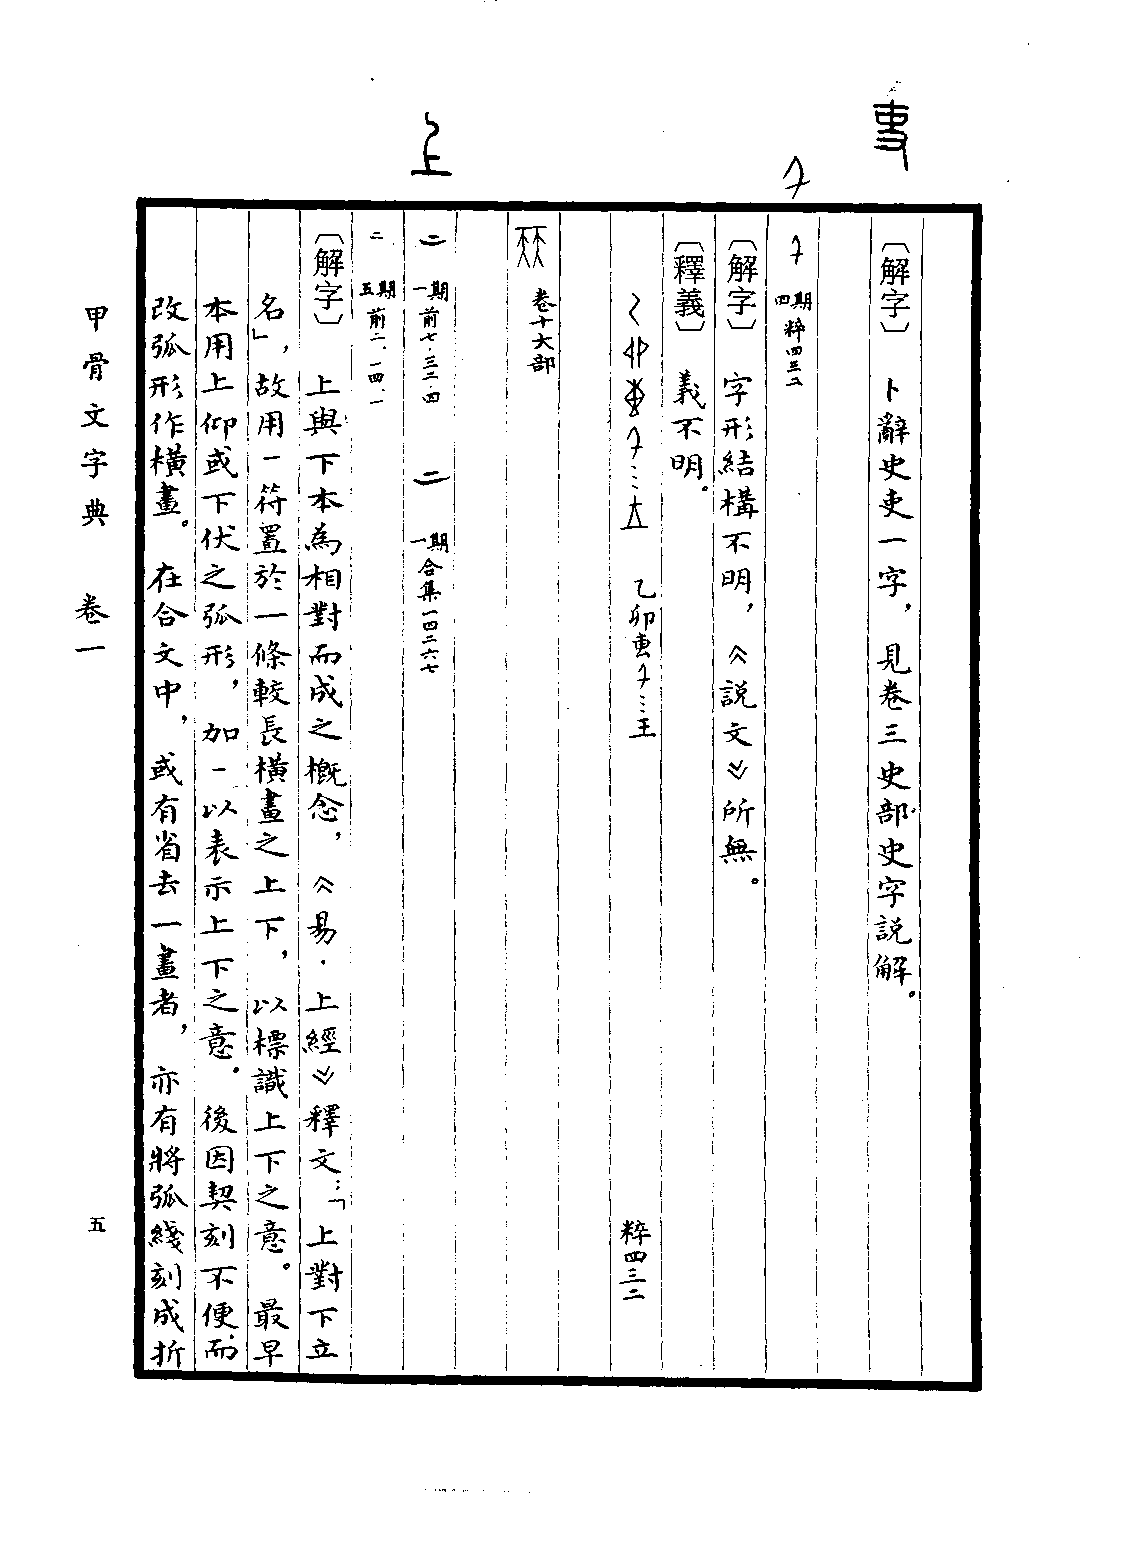 〔解字〕 卜辭史吏一字，見卷三史部史字説解。
四期 粹四三二
〔解字〕 字形結構不明，《説文》所無。
〔釋義〕 義不明。
乙卯叀…王 粹四三二
卷十大部
二 一期 前七·三二·四 二 一期 合集一四二六七
二 五期 前二·一四·一
〔解字〕 上與下本為相對而成之概念，《易·上經》釋文：「上對下立
名」，故用一符置於一條較長橫畫之上下，以標識上下之意。最早
本用上仰或下伏之弧形，加一以表示上下之意。後因契刻不便而
改弧形作橫畫。在合文中，或有省去一畫者，亦有將弧綫刻成折
甲骨文字典 卷一
五